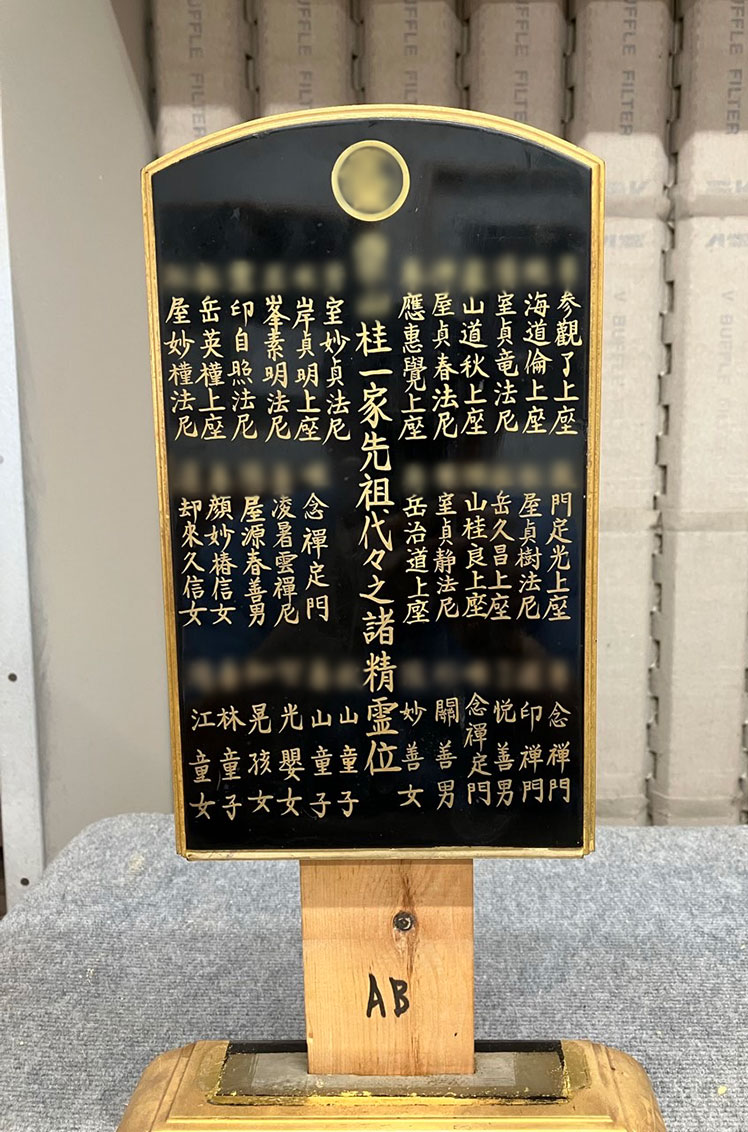 参觀了上座
海道倫上座
室貞竜法尼
山道秋上座
屋貞春法尼
應惠覺上座
門定光上座
屋貞樹法尼
岳久昌上座
山桂良上座
室貞静法尼
岳治道上座
念禅門
印禅門
悦善男
念禪定門
關善男
妙善女
桂一家先祖代々之諸精霊位
室妙貞法尼
岸貞明上座
峯素明法尼
印自照法尼
岳英權上座
屋妙權法尼
念禪定門
凌暑雲禪尼
屋源春善男
顔妙椿信女
却來久信女
山童子
山童子
光嬰女
晃孩女
林童子
江童女
AB
UFFLE FILTER
V BUFFLE